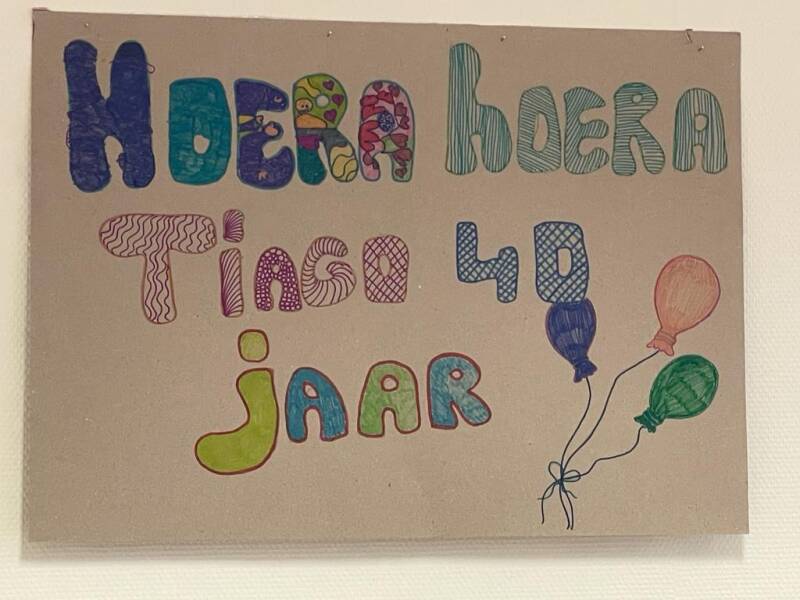 HOERA hOERA
TiAGO 40
jAAR